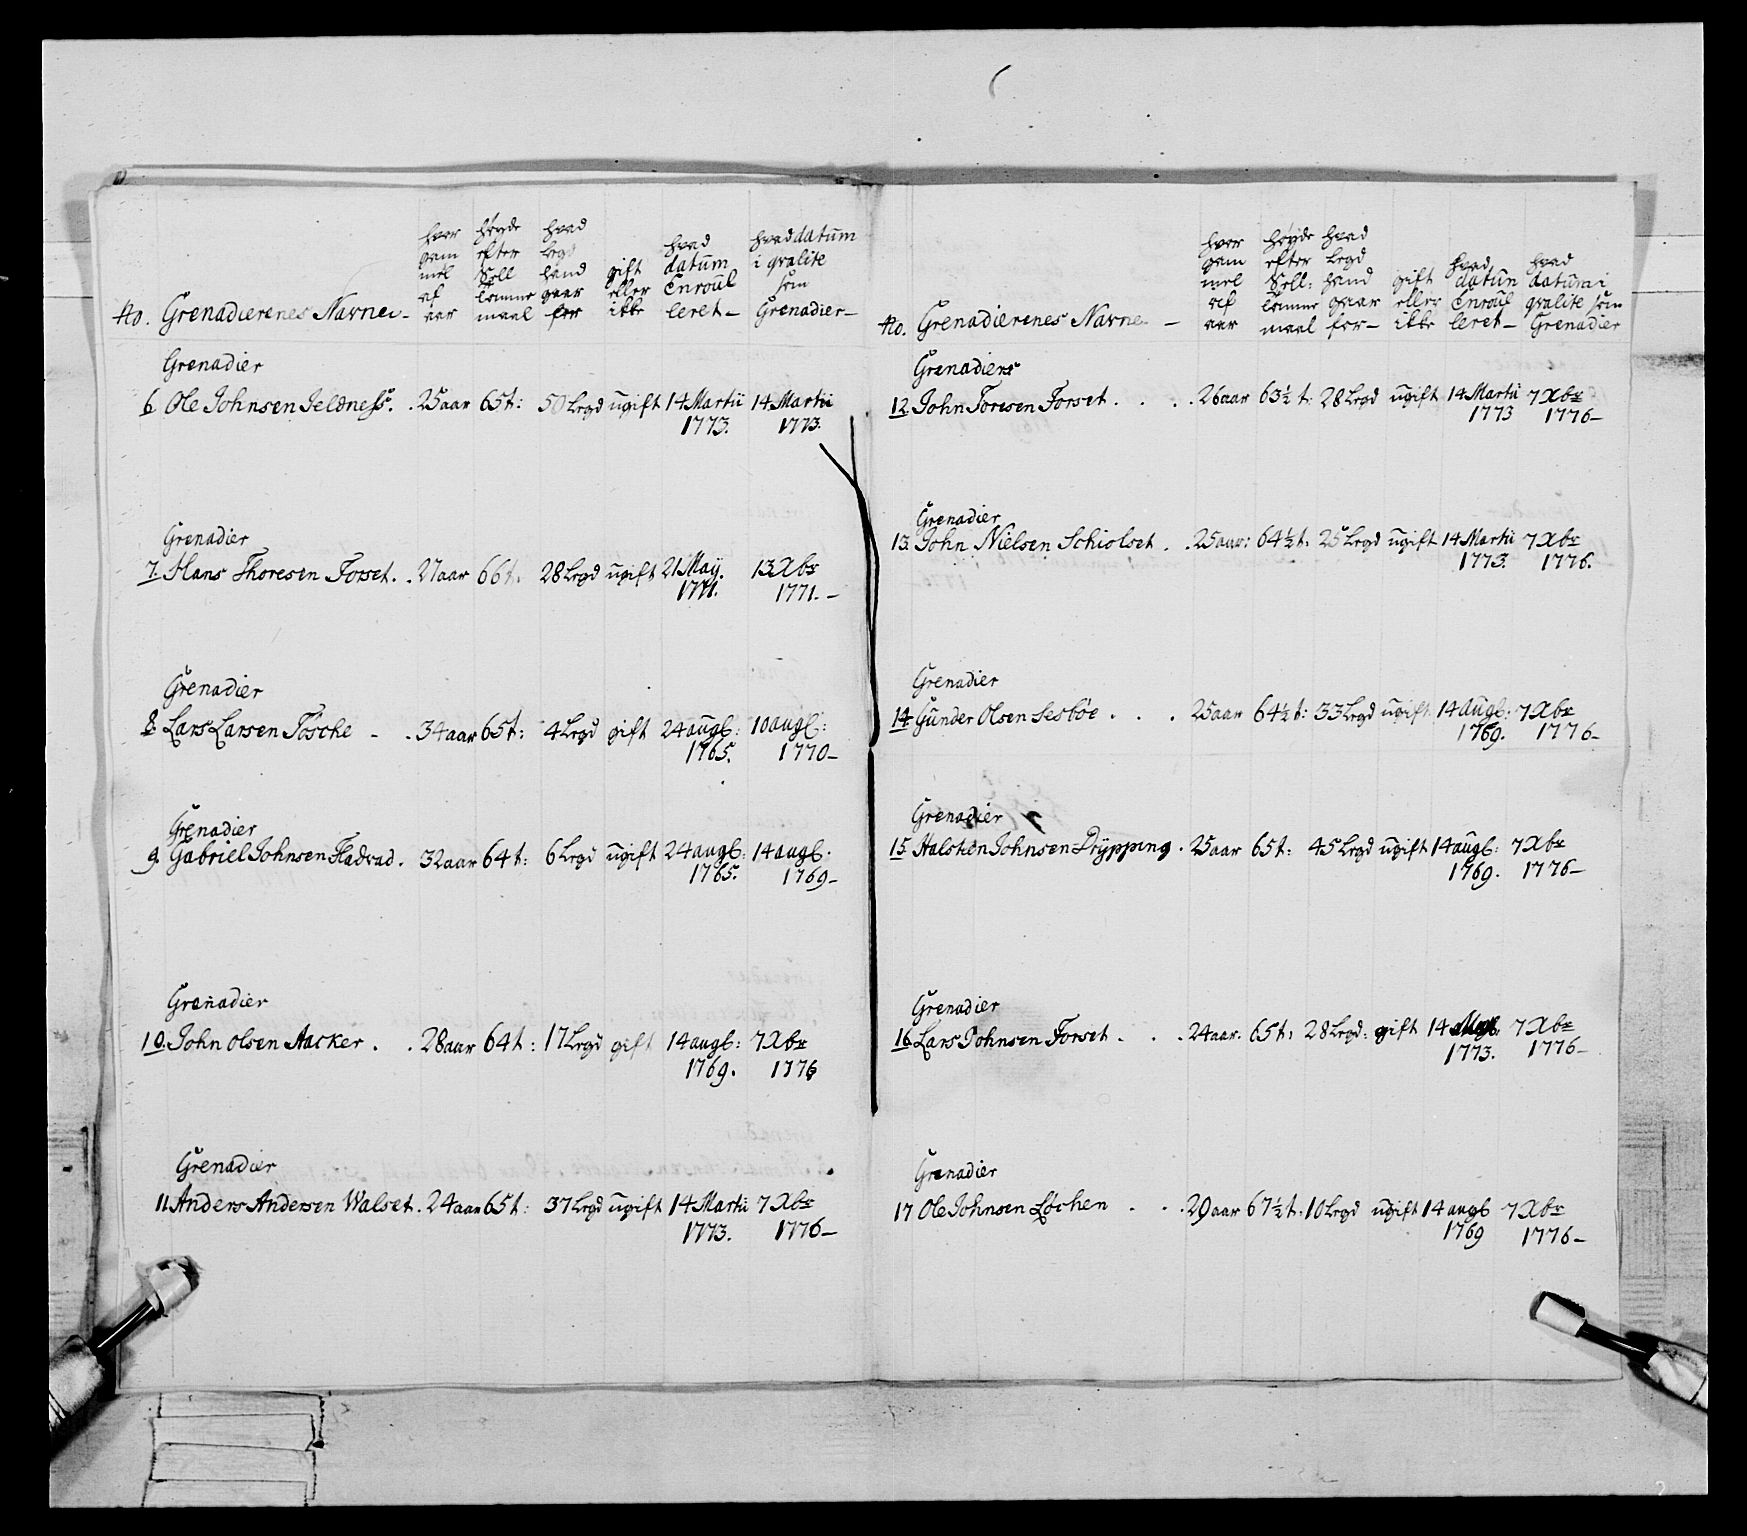 No. Grenadierenes Navne
hvor gam mel af aar
høyde efter Soll tomme maal
hvad Legd hand gaar for
gift eller ikke
hvad datum Enroul leret
hvad datum i qvalite som Grenadier
Grenadier
6 Ole Johnsen Jeldness. . 25 aar 65t: 50 Legd ugift 14 Martii 14 Martii
1773. 1773.
Grenadier
7. Hans Thoresen Forset. . 27 aar 66t. 28 Legd ugift 21 May. 13 Xbr
1771. 1771.
Grenadier
8. Lars Larsen Tösche - . 34 aar 65t: 4 Legd gift 24 augl: 10 augl:
1765. 1770
Grenadier
9. Gabriel Johnsen Fladvad. 32 aar 64t: 6 Legd ugift 24 augl: 14 augl.
1765. 1769
Grenadier
10. John olsen Aacker . . 28 aar 64t: 17 Legd gift 14 augl: 7 Xbr
1769. 1776
Grenadier
11. Anders Andersen Walset. 24 aar 65t: 37 Legd ugift 14 Martii 7 Xbr
1773. 1776
No. Grenadierenes Navne
hvor gam mel af aar
høyde efter Soll: tomme maal
hvad Legd hand gaar for
gift eller ikke
hvad datum Enroul leret
hvad datum i qvalite som Grenadier
Grenadiers
12. John Toresen Forset . . . 26 aar 63½t: 28 Legd ugift 14 Martii 7 Xbr
1773 1776
Grenadier
13. John Nielsen Schiolset . . 25 aar: 64½t: 25 Legd ugift 14 Martii 7 Xbr
1773. 1776.
Grenadier
14. Gunder Olsen Sesböe . . . 25 aar 64½t: 33 Legd ugift 14 augl: 7 Xbr
1769. 1776
Grenadier
15 Halsten Johnsen Drypping . 25 aar 65t: 45 Legd ugift 14 augl: 7 Xbr
1769. 1776
Grenadier
16. Lars Johnsen Forset . . . 24 aar. 65t: 28 Legd: gift 14 7 Xbr
1773. 1776
Grenadier
17 Ole Johnsen Løchen . . . 29 aar 67½t: 10 Legd ugift 14 augl 7 Xbr
1769 1776